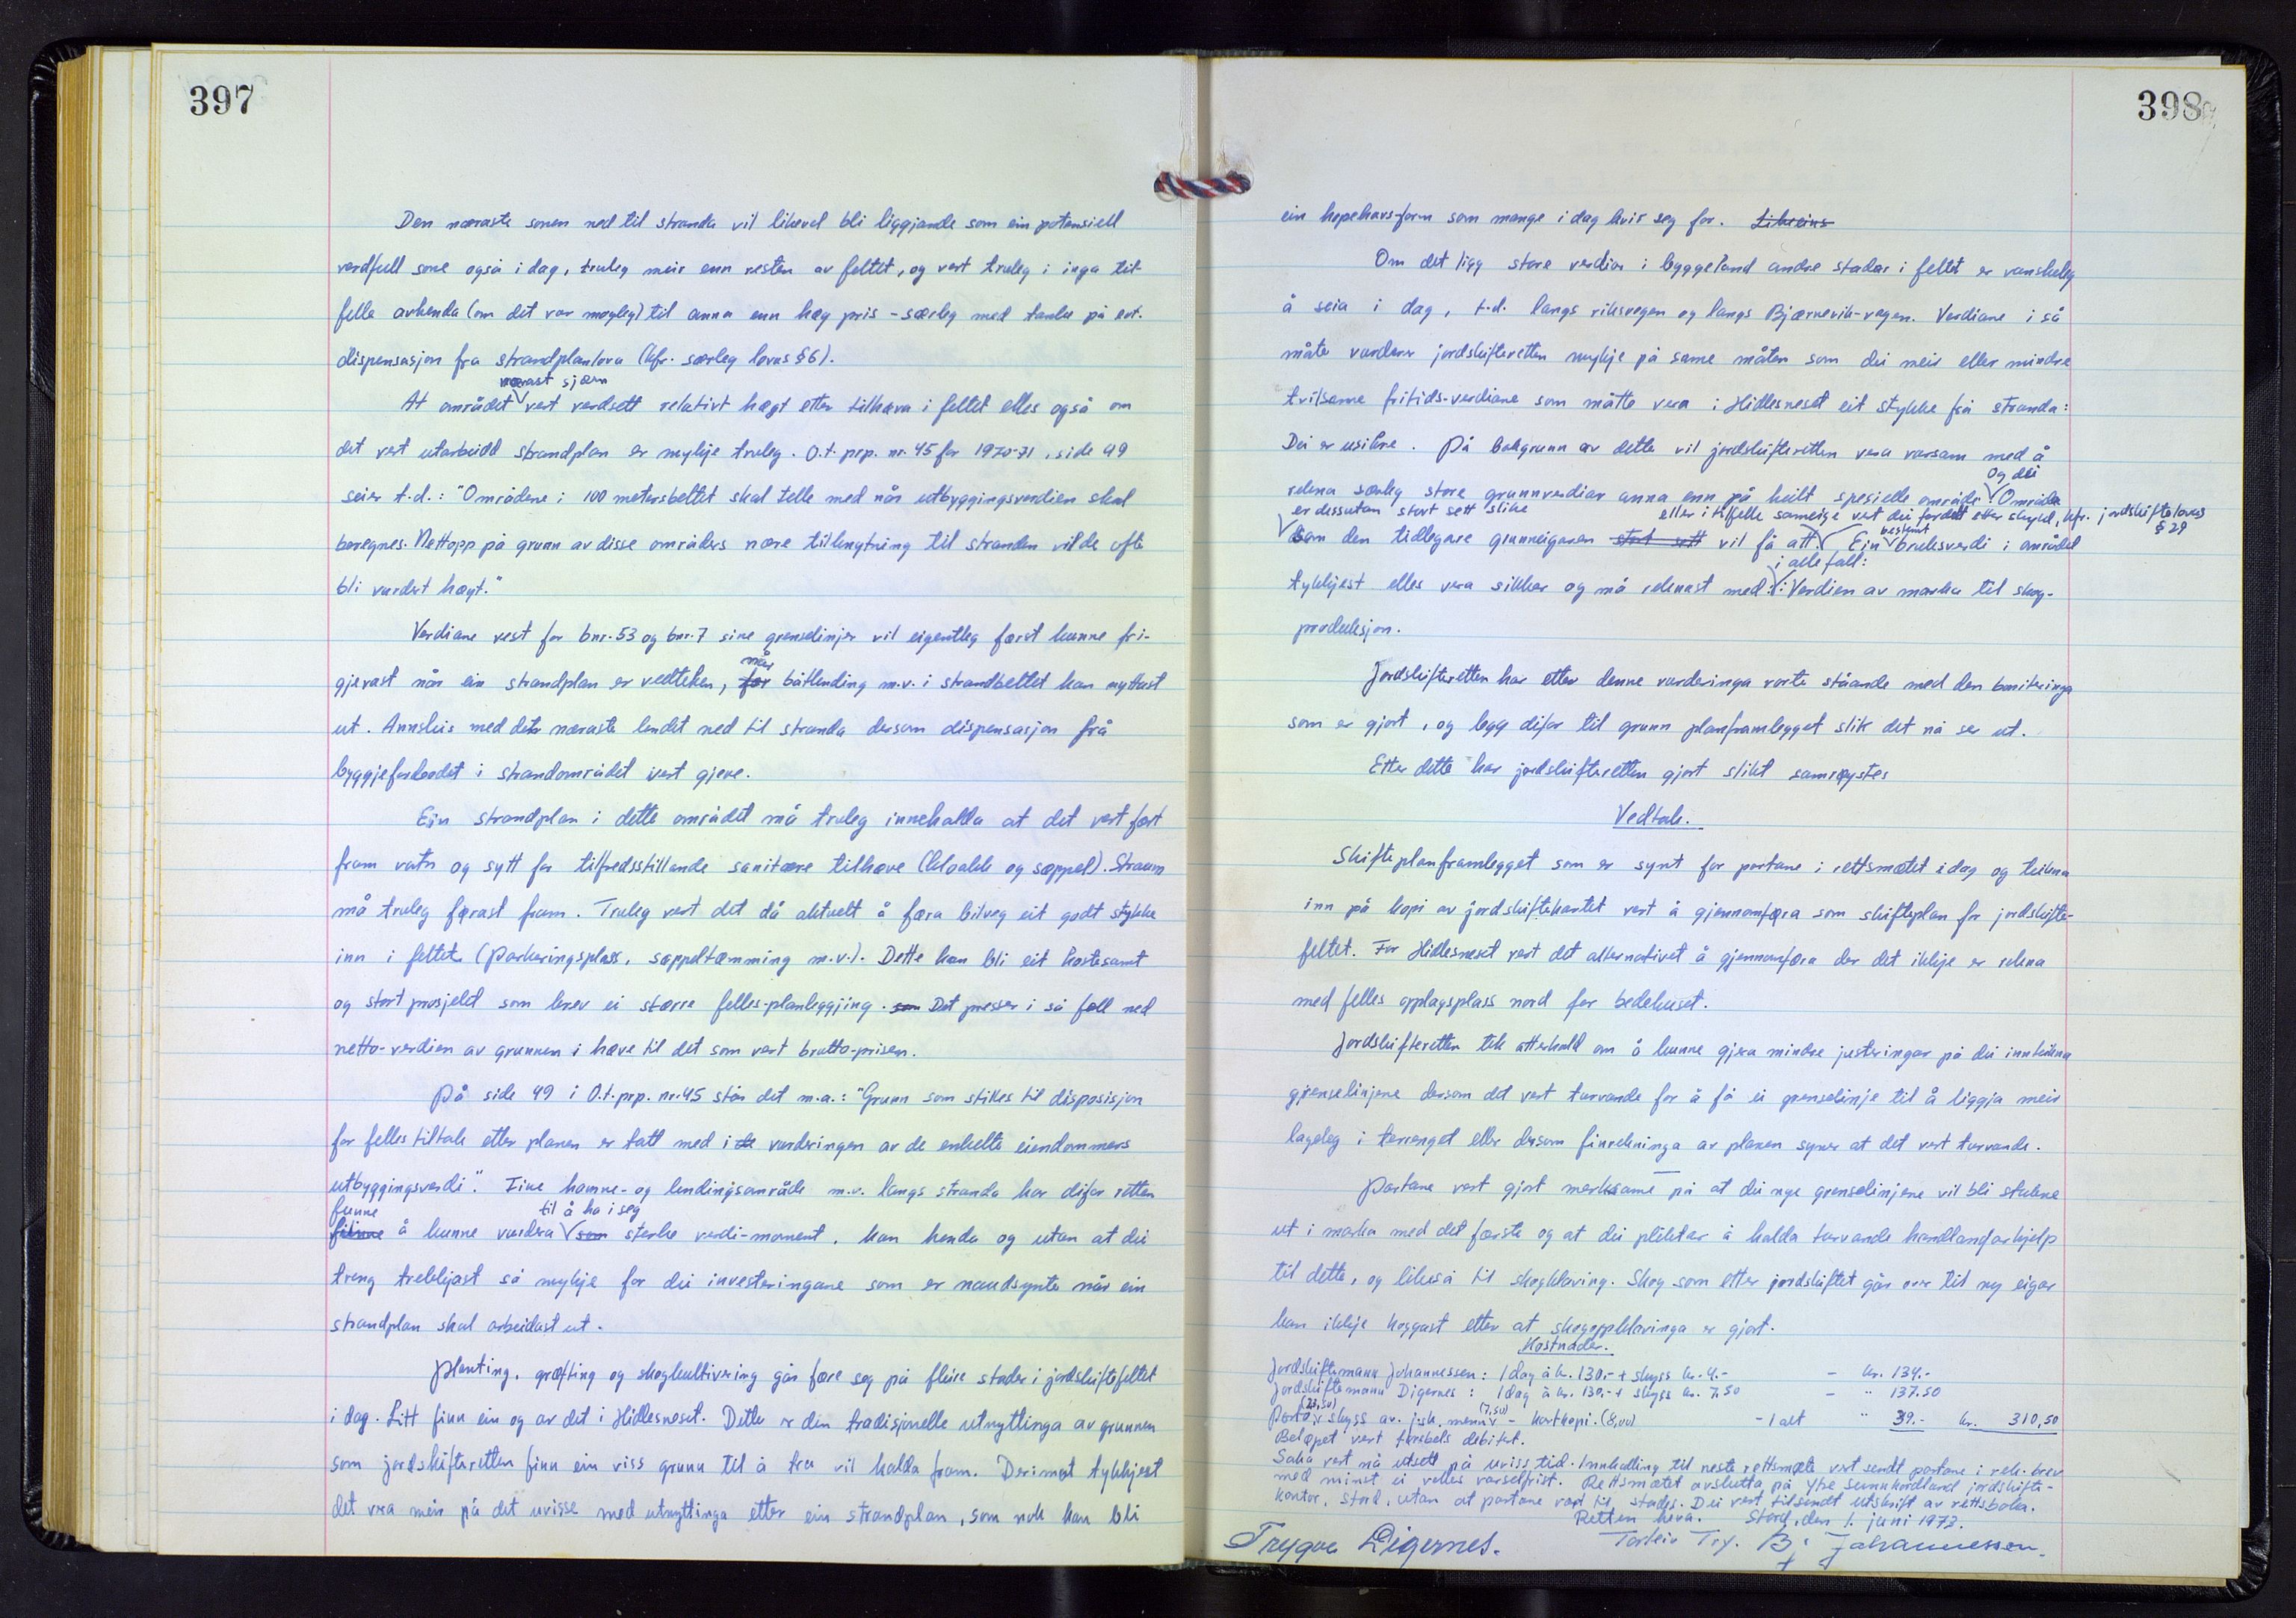 397
Den næraste sonen ned til stranda vil likevel bli liggjande som ein potensiell
verdfull sone også i dag, truleg meir enn resten av feltet, og vert truleg i inga til-
felle avhenda (om det var mogleg) til anna enn høg pris - særleg med tanke på evt.
dispensasjon fra strandplanlova (kfr. særleg lovas § 6).
nærast sjøen
At området vert verdsett relativt høgt etter tilhøva i feltet elles også om
det vert utarbeidd strandplan er mykje truleg. O.t. prp. nr. 45 for 1970-71, side 49
seier t.d.: "Områdene i 100 metersbeltet skal telle med når utbyggingsverdien skal
beregnes. Nettopp på grunn av disse områders nære tilknytning til stranden vil de ofte
bli vurdert høgt."
Verdiane vest for bnr. 53 og bnr. 7 sine grenselinjer vil eigentleg først kunne fri-
når
gjevast når ein strandplan er vedteken, før båtlending m.v. i strandbeltet kan nyttast
ut. Annsleis med det næraste lendet ned til stranda dersom dispensasjon frå
byggjeforbodet i strandområdet vert gjeve.
Ein strandplan i dette området må truleg innehalda at det vert ført
fram vatn og sytt for tilfredsstillande sanitære tilhøve (kloakk og søppel). Straum
må truleg førast fram. Truleg vert det då aktuelt å føra bilveg eit godt stykke
inn i feltet (parkeringsplass, søppeltømming m.v.). Dette kan bli eit kostesamt
og stort prosjekt som krev ei større felles-planleggjing. som Det presser i så fall ned
netto-verdien av grunnen i høve til det som vert brutto-prisen.
På side 49 i O.t. prp. nr. 45 står det m.a.: "Grunn som stilles til disposisjon
for felles tiltak etter planen er tatt med i de vurderingen av de enkelte eiendommers
utbyggingsverdi". Fine hamne- og lendingsområde m.v. langs stranda har difor retten
funne til å ha i seg
å kunne vurdera som sterke verdi-moment, kan henda og utan at dei
treng trekkjast så mykje for dei investeringane som er naudsynte når ein
strandplan skal arbeidast ut.
Planting, grøfting og skogkultivering går føre seg på fleire stader i jordskiftefeltet
i dag. Litt finn ein og av det i Hidlesneset. Dette er den tradisjonelle utnyttinga av grunnen
som jordskifteretten finn ein viss grunn til å tru vil halda fram. Derimot tykkjest
det vera meir på det uvisse med utnyttinga etter ein strandplan, som nok kan bli
398
ein hopehavs-form som mange i dag kvir seg for. Likeeins
Om det ligg store verdiar i byggeland andre stadar i feltet er vanskeleg
å seia i dag, t.d. langs riksvegen og langs Bjørnevik-vegen. Verdiane i så
måte vurderer jordskifteretten mykje på same måten som dei meir eller mindre
tvilsame fritids-verdiane som måtte vera i Hidlesneset eit stykke frå stranda:
Dei er usikre. På bakgrunn av dette vil jordskifteretten vera varsam med å
og dei
rekna særleg store grunnverdiar anna enn på heilt spesielle område. Områda
er dessutan stort sett slike eller i tilfelle sameige vert dei fordelt etter skyld, kfr. jordskiftelovas § 29
som den tidlegare grunneigaren stort sett vil få att. Ein bestemt bruksverdi i området
i alle fall:
tykkjest elles vera sikker og må reknast med: Verdien av marka til skog-
produksjon.
Jordskifteretten har etter denne vurderinga vorte ståande med den boniteringa
som er gjort, og legg difor til grunn planframlegget slik det nå ser ut.
Etter dette har jordskifteretten gjort slikt samrøystes
Vedtak.
Skifteplanframlegget som er synt for partane i rettsmøtet i dag og teikna
inn på kopi av jordskiftekartet vert å gjennomføra som skifteplan for jordskifte-
feltet. For Hidlesneset vert det alternativet å gjennomføra der det ikkje er rekna
med felles opplagsplass nord for bedehuset.
Jordskifteretten tek atterhald om å kunne gjera mindre justeringar på dei innteikna
grenselinjene dersom det vert turvande for å få ei grenselinje til å liggja meir
lageleg i terrenget eller dersom finrekninga av planen syner at det vert turvande.
Partane vert gjort merksame på at dei nye grenselinjene vil bli stukne
ut i marka med det første og at dei pliktar å halda turvande handlangarhjelp
til dette, og likeså til skogklaving. Skog som etter jordskiftet går over til ny eigar
kan ikkje hoggast etter at skogoppklavinga er gjort.
Kostnader.
Jordskiftemann Johannessen: 1 dag à kr. 130.- + skyss kr. 4.- - kr. 134.-
Jordskiftemann Digernes: 1 dag à kr. 130.- + skyss kr. 7,50 - " 137.50
Porto (23,50), skyss av. j.sk. menn (7,50) - kartkopi. (8,00) - I alt " 39.- kr. 310,50
Beløpet vert førebels debitert.
Saka vert nå utsett på uviss tid. Innkalling til neste rettsmøte vert sendt partane i rek. brev
med minst ei vekes varselfrist. Rettsmøtet avslutta på Ytre Sunnhordland jordskifte-
kontor, Stord, utan at partane var til stades. Dei vert tilsendt utskrift av rettsboka.
Retten heva. Stord, den 1. juni 1972.
Trygve Digernes. Torleiv Try. Bj Johannessen.